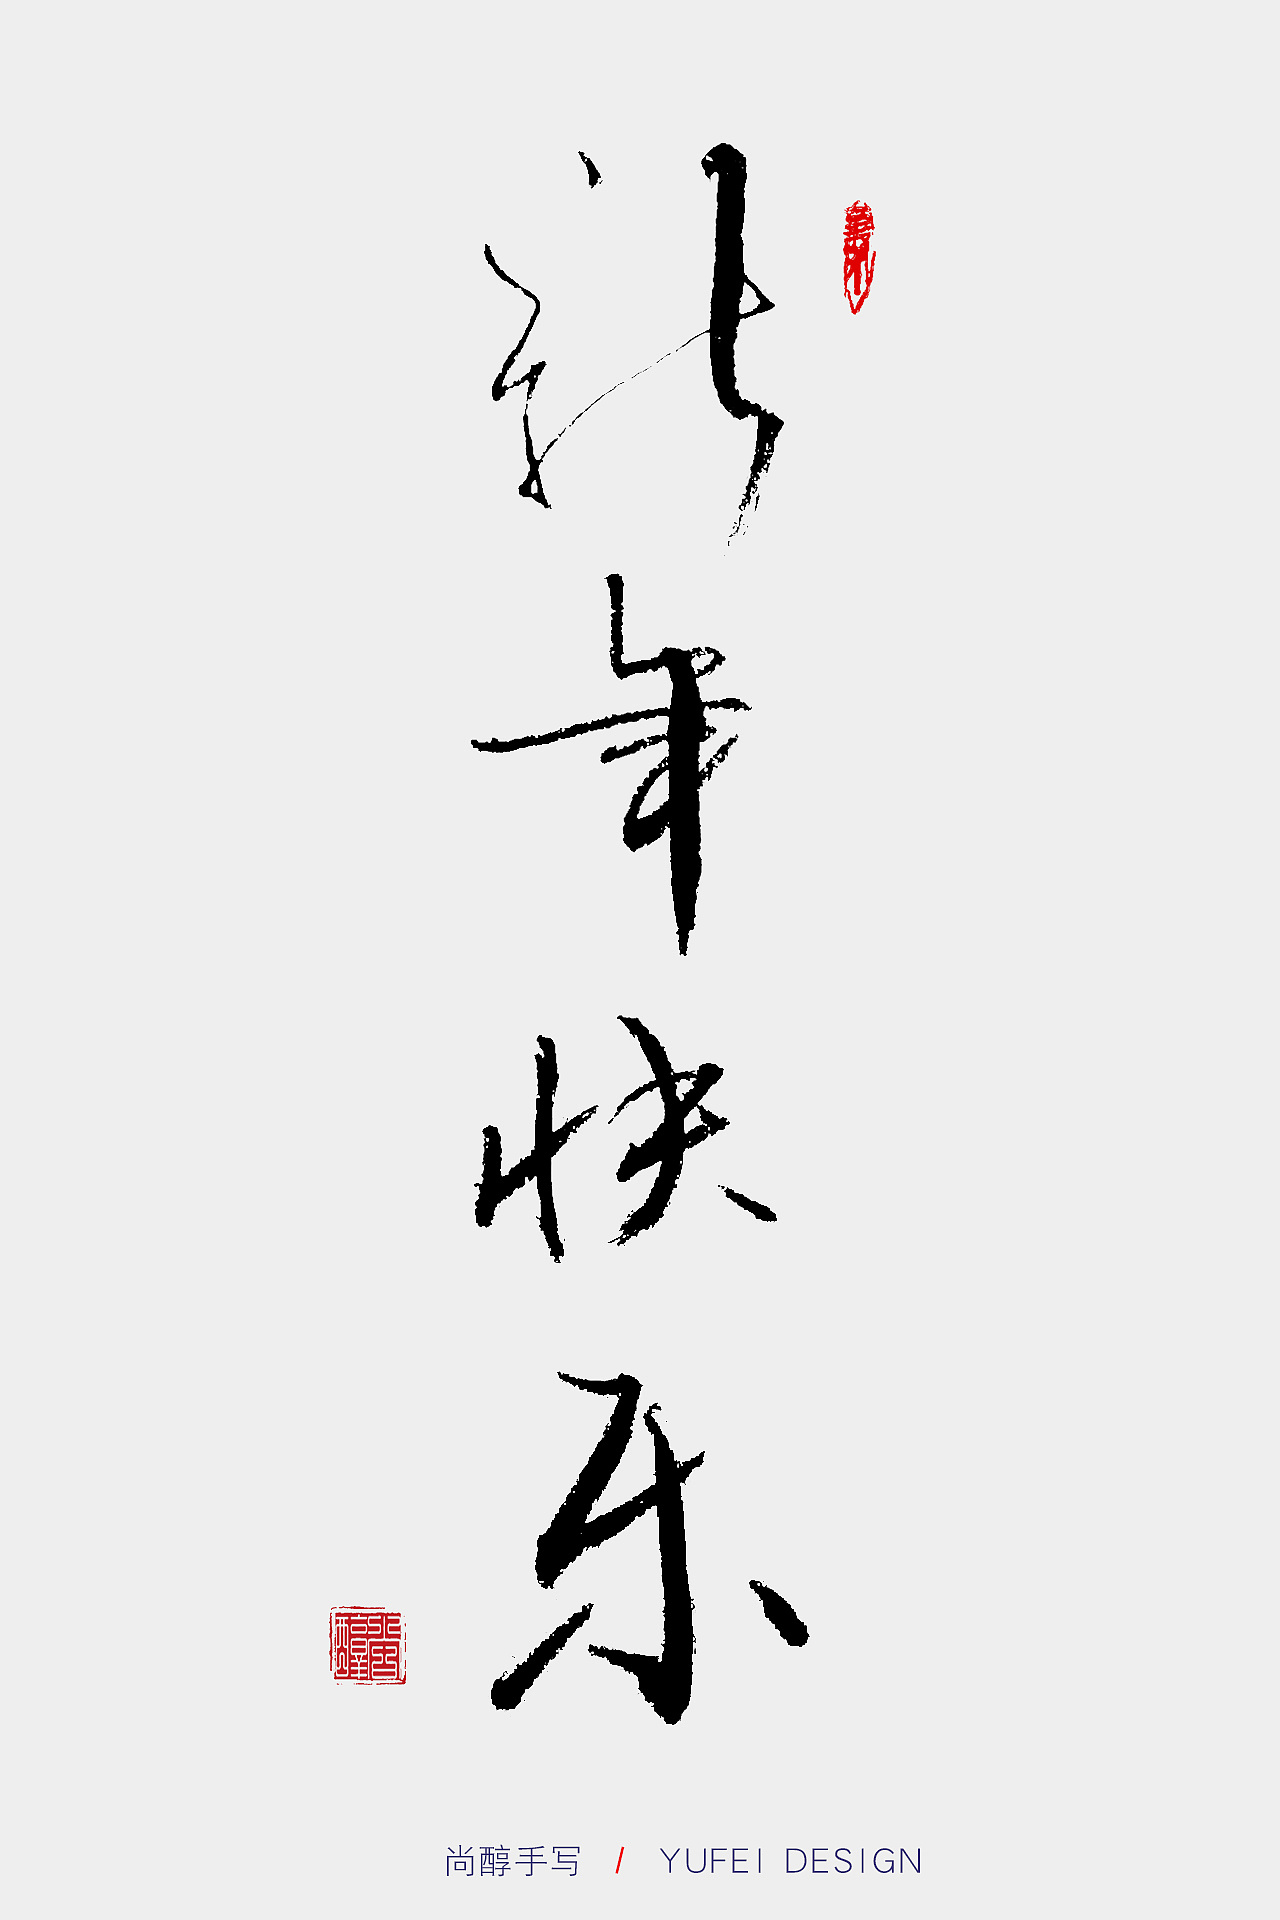 新年快乐
尚醇手写 / YUFEI DESIGN